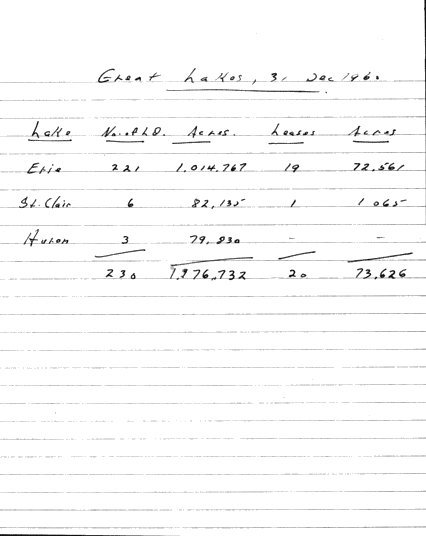 Great Lakes, 31 Dec 1960.
Lake No. of L.O. Acres. Leases Acres
Erie 221 1,014,767 19 72,561
St. Clair 6 82,135 1 1065
Huron 3 79,830 - -
230 1,176,732 20 73,626